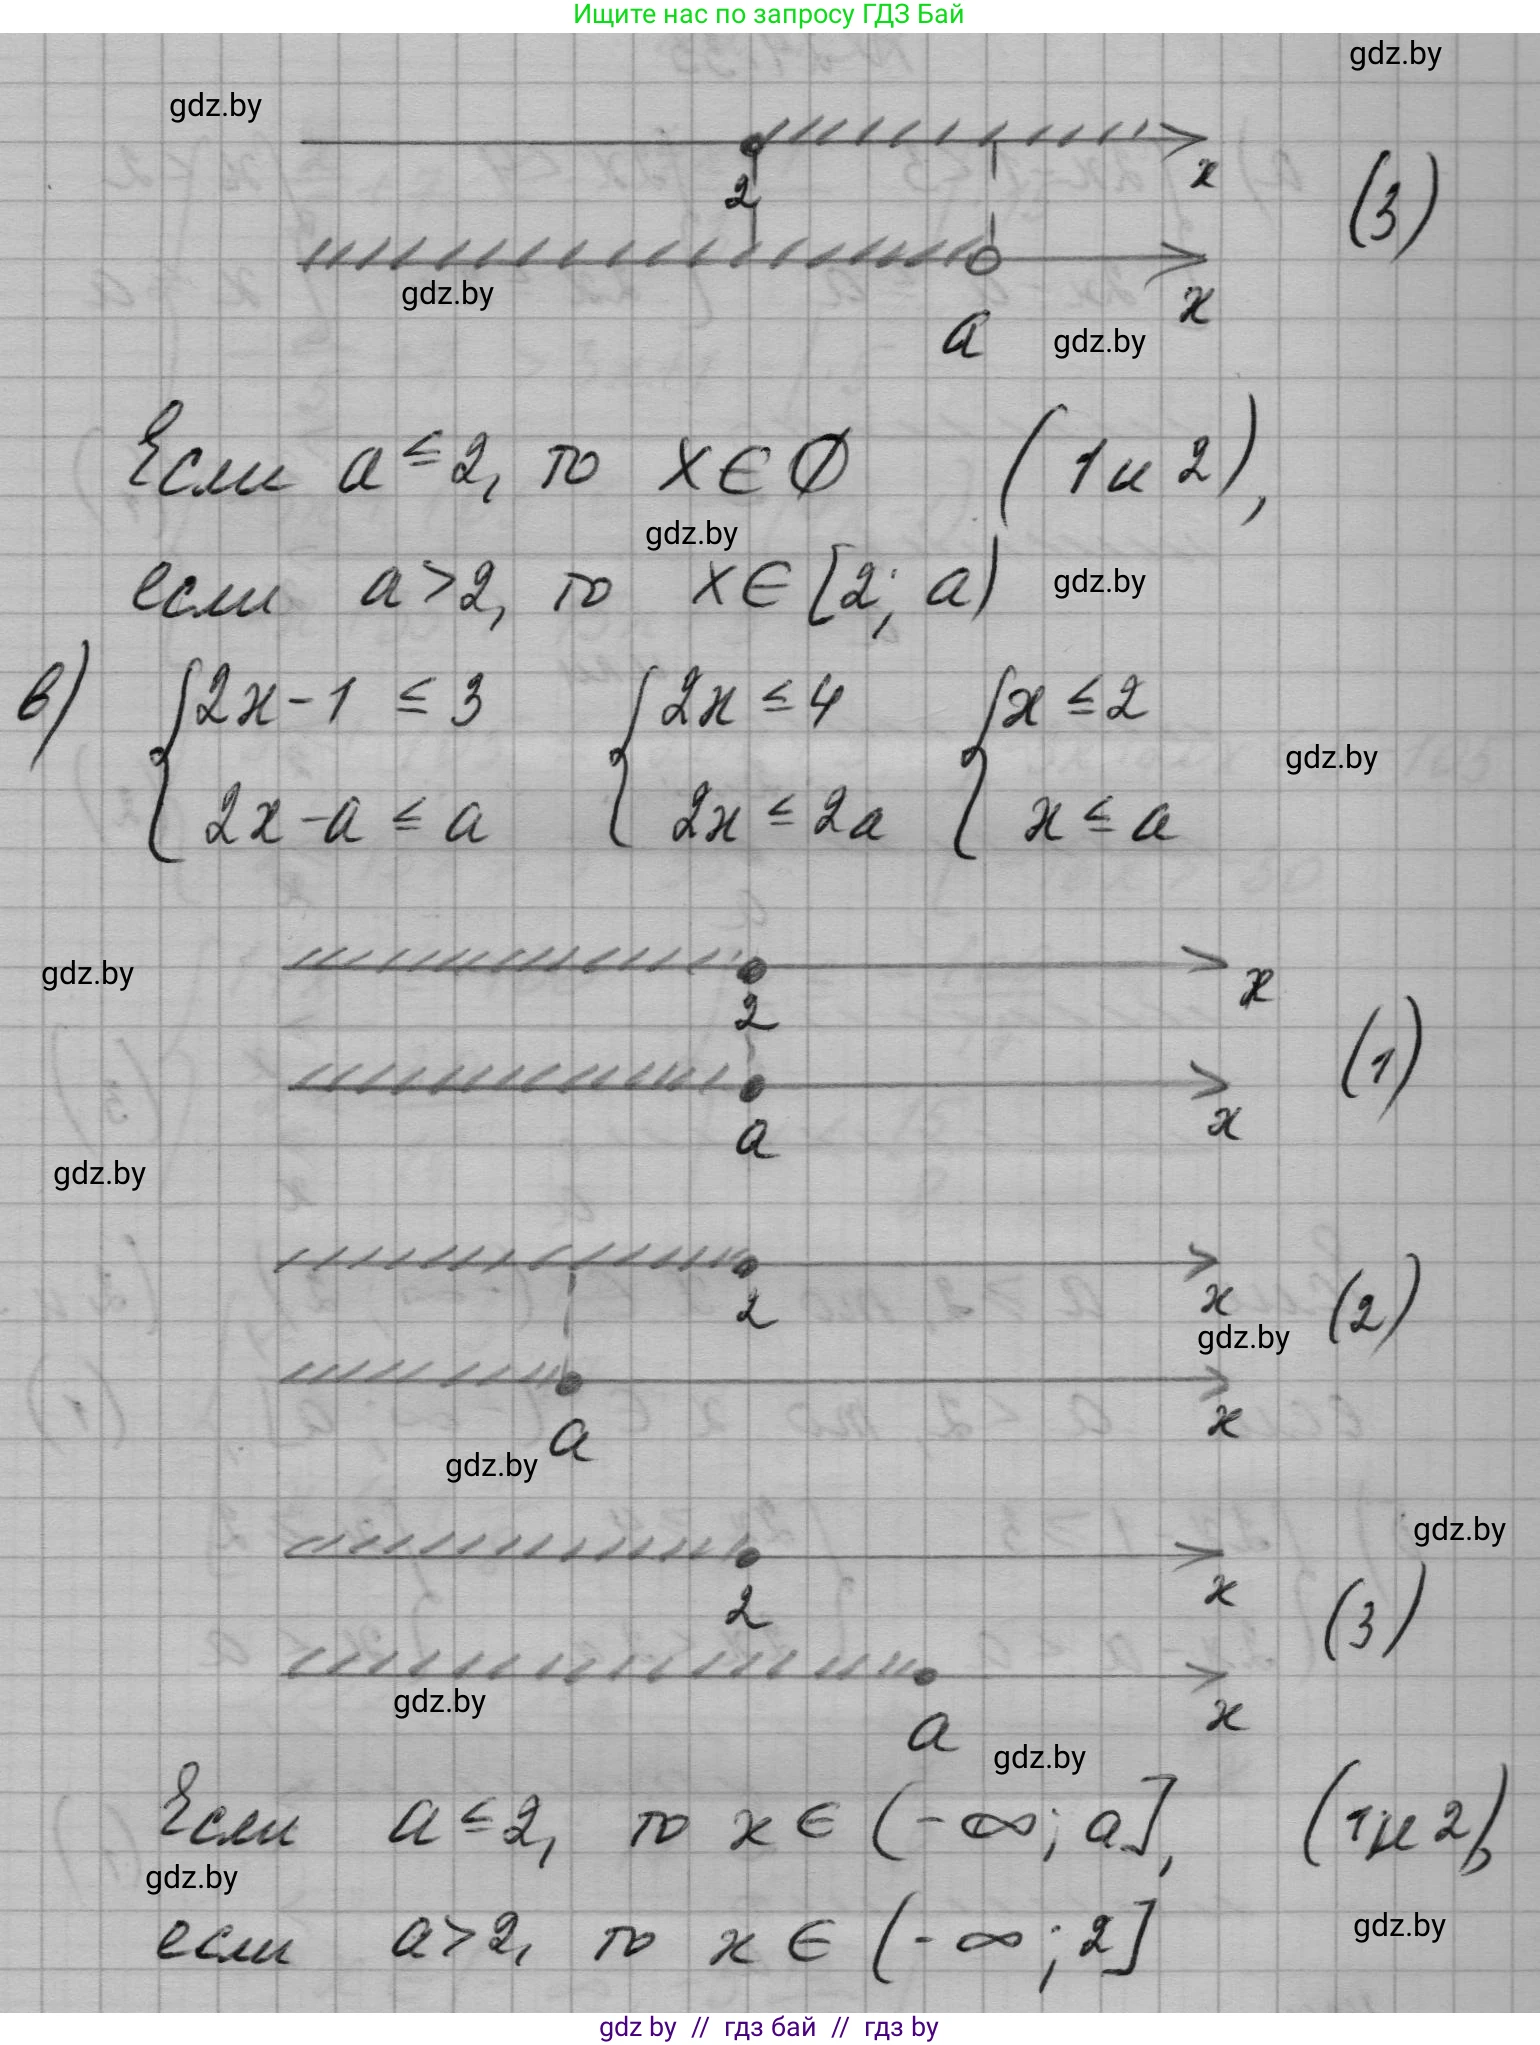 Ищите нас по запросу ГДЗ Бай
gdz.by
gdz.by
2 x (3)
gdz.by
x
a gdz.by
Если a ≤ 2, то x ∈ ∅ (1 и 2),
gdz.by
если a > 2, то x ∈ [2; a) gdz.by
в) { 2x - 1 ≤ 3 { 2x ≤ 4 { x ≤ 2
gdz.by
2x - a ≤ a 2x ≤ 2a x ≤ a
gdz.by
x
2
(1)
x
a
gdz.by
x
2 (2)
gdz.by
x
a
gdz.by
gdz.by
x
2 (3)
gdz.by
x
a
gdz.by
Если a ≤ 2, то x ∈ (-∞; a], (1 и 2),
gdz.by
если a > 2, то x ∈ (-∞; 2]
gdz.by
gdz by // гдз бай // гдз by